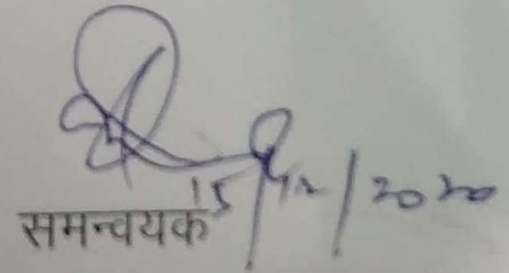 15/12/2020
समन्वयक